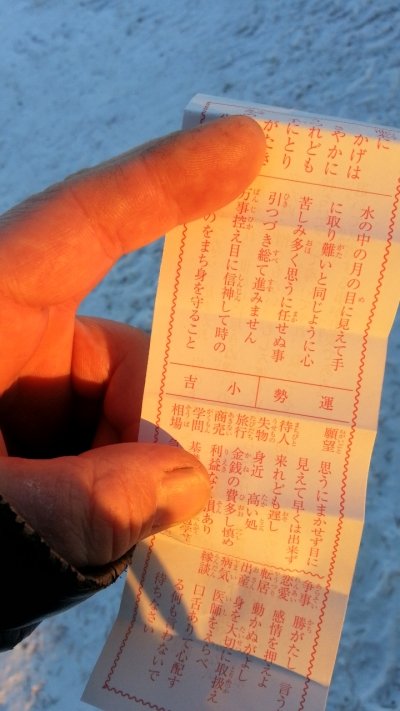 に
かげは
やかに
れども
にとり
がたき
水の中の月の目に見えて手
に取り難いと同じように心
苦しみ多く思うに任せぬ事
引つづき総て進みません
万事控え目に信神して時の
のをまち身を守ること
運勢 小吉
願望 思うにまかせず目に
見えて早くは出来ず
待人 来れども遅し
失物 身近 高い処
旅行 金銭の費多し慎め
商売 利益な 損あり
学問 基
相場
争事 勝がたし 言う
恋愛 感情を押えよ
転居 動かぬがよし
出産 身を大切に取扱え
病気 医師をえらべ
縁談 口舌ありて心配す
ないで
待ちなさい